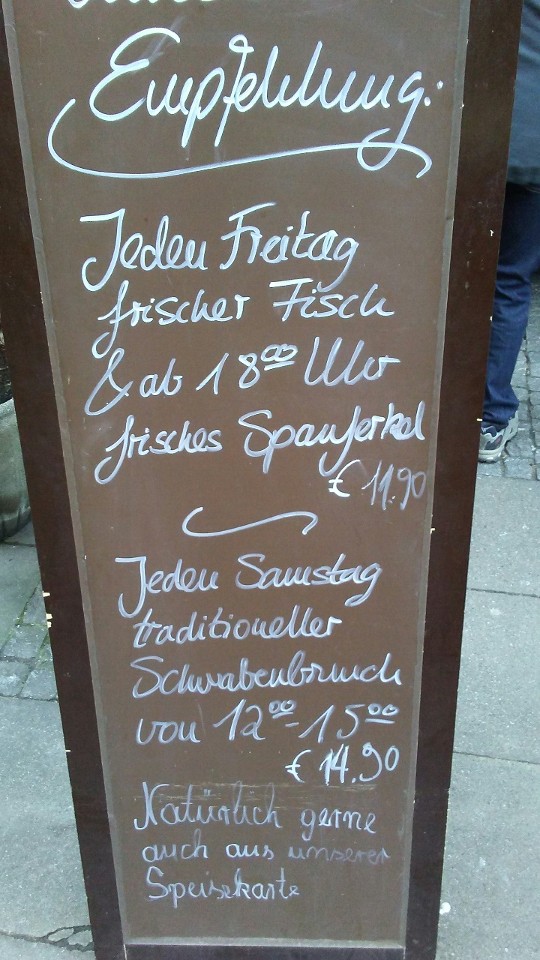 Empfehlung:
Jeden Freitag
frischer Fisch
& ab 18⁰⁰ Uhr
frisches Spanferkel
€ 11.90
Jeden Samstag
traditioneller
Schwabenbrunch
von 12⁰⁰-15⁰⁰
€ 14.90
Natürlich gerne
auch aus unserer
Speisekarte